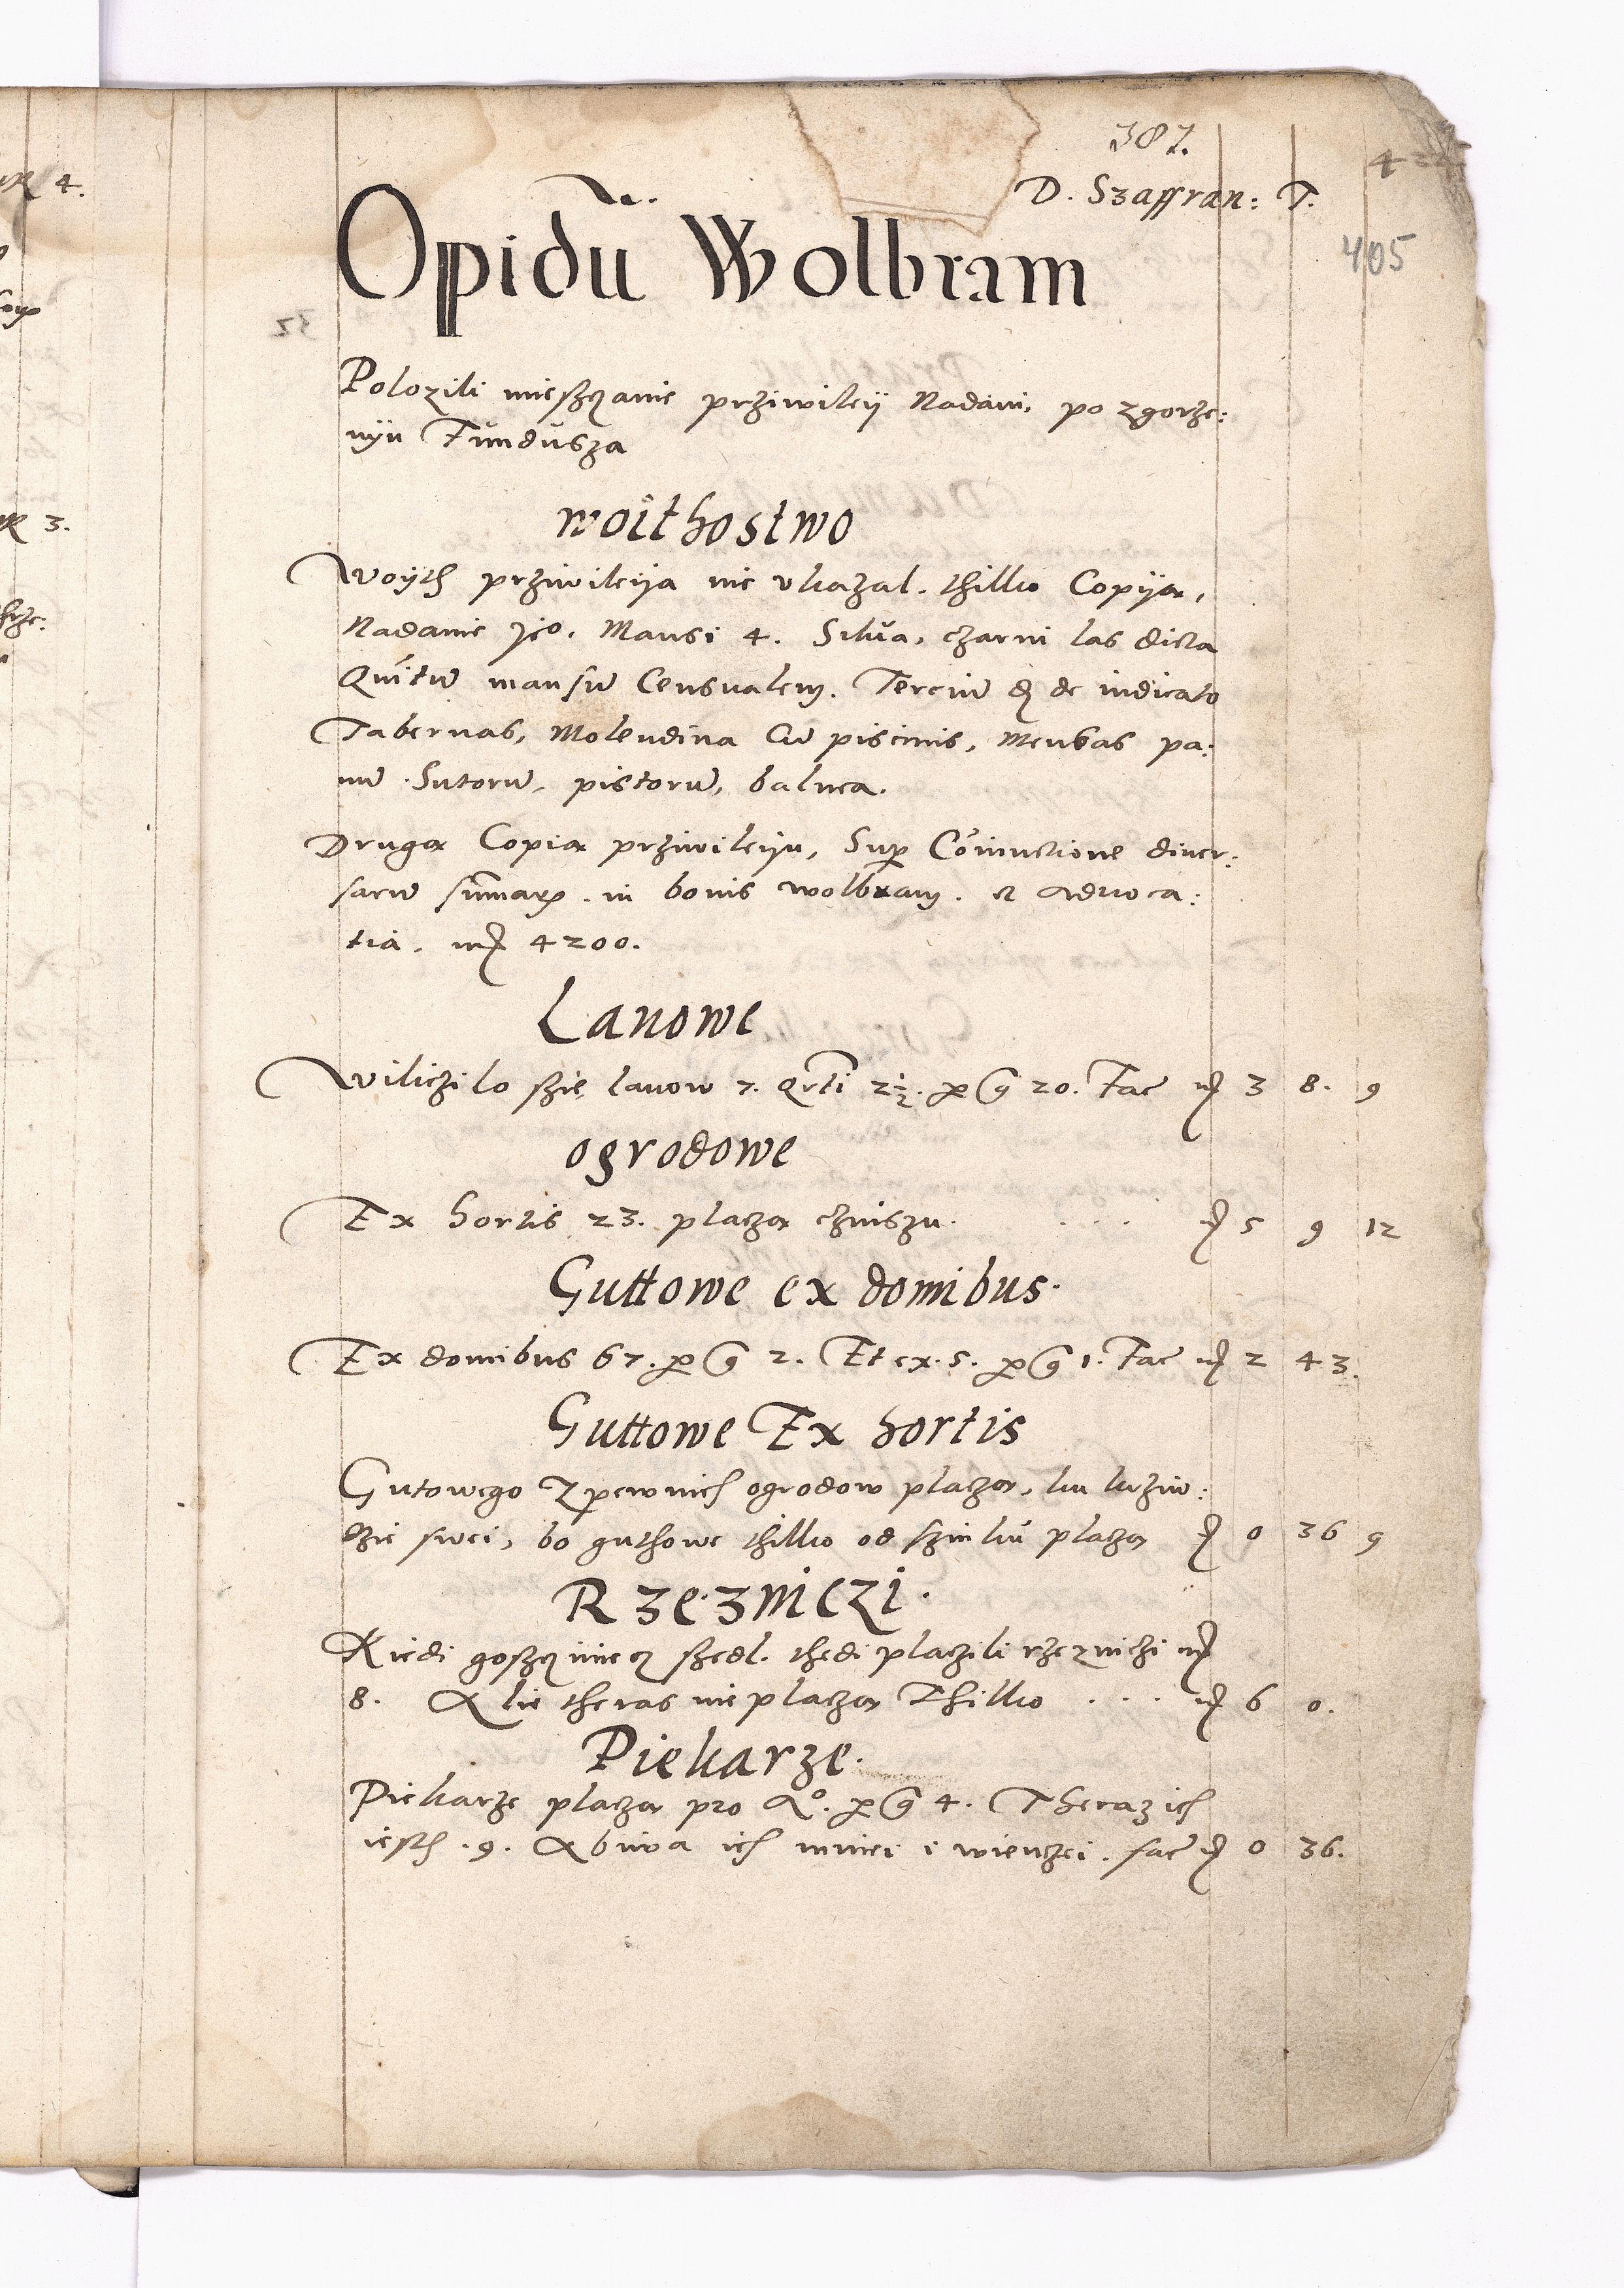 387.
D. Szaffran: T.
405
Opidū Wolbram
Polozili miesczanie prziwileij Nadani, po zgorze:
nyu Fundusza
woithostwo
Woyth prziwileija nie vkazal. thilko Copija,
Nadanie jeo. Mansi 4. Silua, czarni las dicta
Quītū mansū Censualem. Terciū d de iudicato
Tabernas, Molendina Cū piscinis, Mensas pa:
nū Sutorū, pistorū, balnea.
Druga Copia prziwileiju, Sup Cōiunctione diuer:
sarū sūmarꝝ. in bonis wolbram. et aduoca:
tia. 4200.
Lanowe
Wiliczilo szię lanow 7. Qrtī 2½. per g 20. Fac 3 8. 9
ogrodowe
Ex hortis 23. placza czinszu. . . . 5 9 12
Guttowe ex domibus.
Ex domibus 67. per g 2. Et ex. 5. per g 1. Fac 2 43.
Guttowe Ex hortis
Gutowego Z pewnich ogrodow placza, ku krziw:
dzie swei, bo guthowe thilko od szinku placza 0 36 9
Rzezniczi.
Kiedi gosczinecz szedl. thedi placzili rzezniczi
8. Alie theras nie placza Thilko . . . 6 0.
Piekarze.
Piekarze placza pro Ao. per g 4. Theraz ich
iesth. 9. A biwa ich mniei i wienczei. fac 0 36.